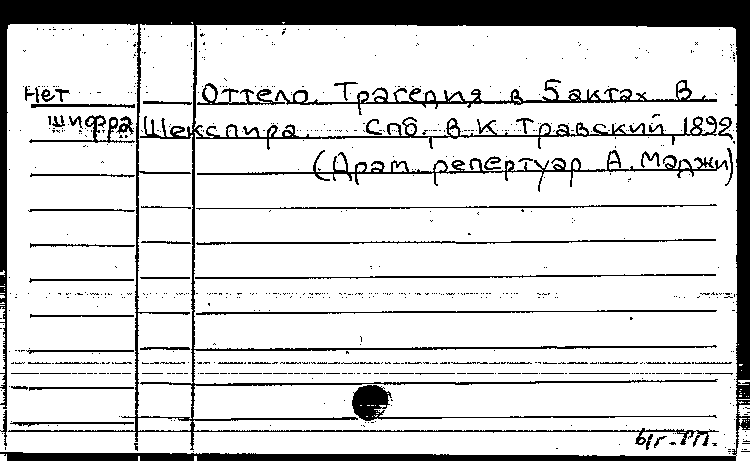 Нет
шифра
Оттело. Трагедия в 5 актах В.
Шекспира. Спб., В.К. Травский, 1892
(Драм. репертуар А. Маджи)